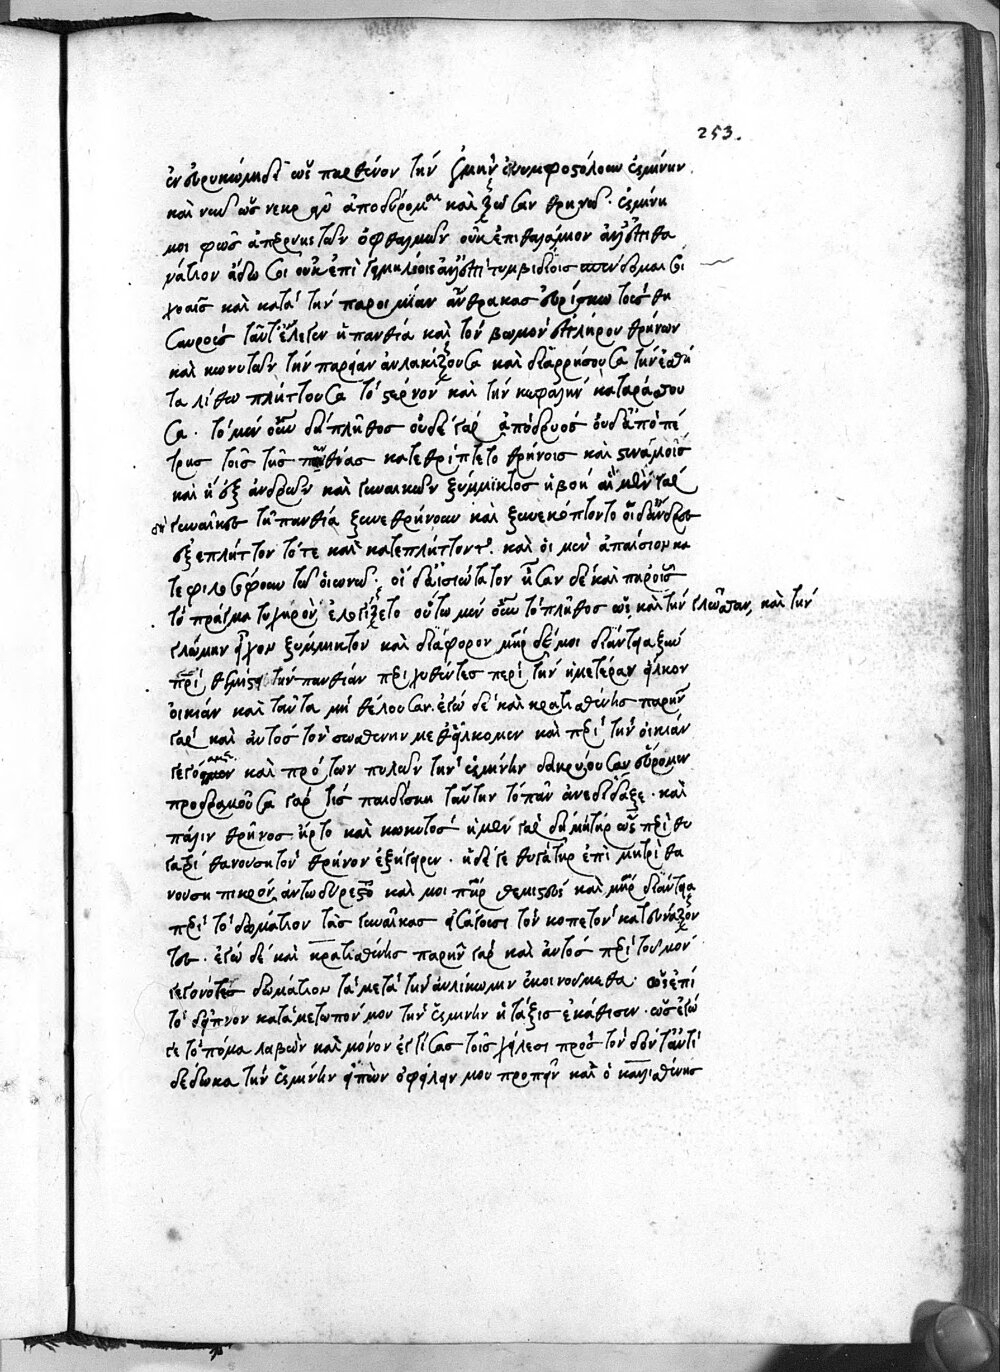 253.
ἐν εὐρυκώμιδι ὡς παρθένον τὴν ἐμὴν ἐνυμφοστόλουν ὑσμίνην
καὶ νῦν ὡς νεκρὰν ἀποδύρομαι καὶ ζῶσαν θρηνῶ. ὑσμίνη
μοι φῶς ἀπέρχῃ τῶν ὀφθαλμῶν οὐκ ἐπιθαλάμιον ἀλλ' ἐπιθα
νάτιον ᾄδω σοι οὐκ ἐπὶ γαμηλίοις ἀλλ' ἐπιτυμβιδίοις σπένδομαί σοι
χοαῖς καὶ κατὰ τὴν παροιμίαν ἄνθρακας εὑρίσκω τοὺς θη
σαυρούς ταῦτ' ἔλεγεν ἡ πανθία καὶ τὸν βωμὸν ἐπλήρου θρήνων
καὶ κωκυτῶν τὴν παρειὰν αὐλακίζουσα καὶ διαρρήσσουσα τὴν ἐσθῆ
τα λίθῳ πλήττουσα τὸ στέρνον καὶ τὴν κεφαλὴν καταράσσου
σα. τὸ μὲν οὖν δὴ πλῆθος οὐδὲ γὰρ ἀπὸ δρυὸς οὐδ' ἀπὸ πέ
τρης τοῖς τῆς πανθίας κατεθρύπτετο θρήνοις καὶ στεναγμοῖς
καὶ ἦν ἐξ ἀνδρῶν καὶ γυναικῶν ξύμμικτος ἡ βοή αἱ μὲν γὰρ
γυναῖκες τῇ πανθίᾳ ξυνεθρήνουν καὶ ξυνεκόπτοντο οἱ δ' ἄνδρες
ἐξεπλήττοντό τε καὶ κατεπλήττοντο. καὶ οἱ μὲν ἀπαίσιον κα
τεφιλοσόφουν τὸν οἰωνόν. οἱ δ' αἰσιώτατον ἦσαν δὲ καὶ παρ' οἷς
τὸ πρᾶγμα τυχηρὸν ἐλογίζετο οὕτω μὲν οὖν τὸ πλῆθος ὡς καὶ τὴν γλῶτταν, καὶ τὴν
γνώμην εἶχον ξύμμικτον καὶ διάφορον μῆτερ δέ μοι διάντεια ξὺν
πατρὶ θεμιστεῖ τὴν πανθίαν περιχυθέντες περὶ τὴν ἡμετέραν εἷλκον
οἰκίαν καὶ ταῦτα μὴ θέλουσαν. ἐγὼ δὲ καὶ κρατισθένης παρῆν
γὰρ καὶ αὐτὸς τὸν σωσθένην μεθείλκομεν καὶ περὶ τὴν οἰκίαν
γεγόναμεν καὶ πρὸ τῶν πυλῶν τὴν ὑσμίνην δακρύουσαν εὕρομεν
προδραμοῦσα γάρ τις παιδίσκη ταύτην τὸ πᾶν ἀνεδίδαξε. καὶ
πάλιν θρῆνος ᾔρετο καὶ κωκυτός ἡ μὲν γὰρ δὴ μήτηρ ὡς περὶ θυ
γατρὶ θανούσῃ τὸν θρῆνον ἐξήγειρεν. ἡ δέ γε θυγάτηρ ἐπὶ μητρὶ θα
νούσῃ πικρὸν ἀντωδύρετο καί μοι πατὴρ θεμιστεὺς καὶ μήτηρ διάντεια
περὶ τὸ δωμάτιον τὰς γυναῖκας εἰσάγουσι τὸν κοπετὸν κατευνάζον
τες. ἐγὼ δὲ καὶ κρατισθένης παρῆν γὰρ καὶ αὐτός περὶ τοὐμὸν
γεγονότες δωμάτιον τὰ μετὰ τὴν αὐλίκωμιν ἐκοινούμεθα. ὡς ἐπὶ
τὸ δεῖπνον κατὰ μέτωπόν μου τὴν ὑσμίνην ἡ τάξις ἐκάθισεν. ὡς ἐγώ
γε τὸ πόμα λαβὼν καὶ μόνον ἐγγίσας τοῖς χείλεσι πρὸς τὸν δόντ' ἀντι
δέδωκα τὴν ὑσμίνην εἰπὼν ὀφείλειν μου προπιεῖν καὶ ὁ κρατισθένης